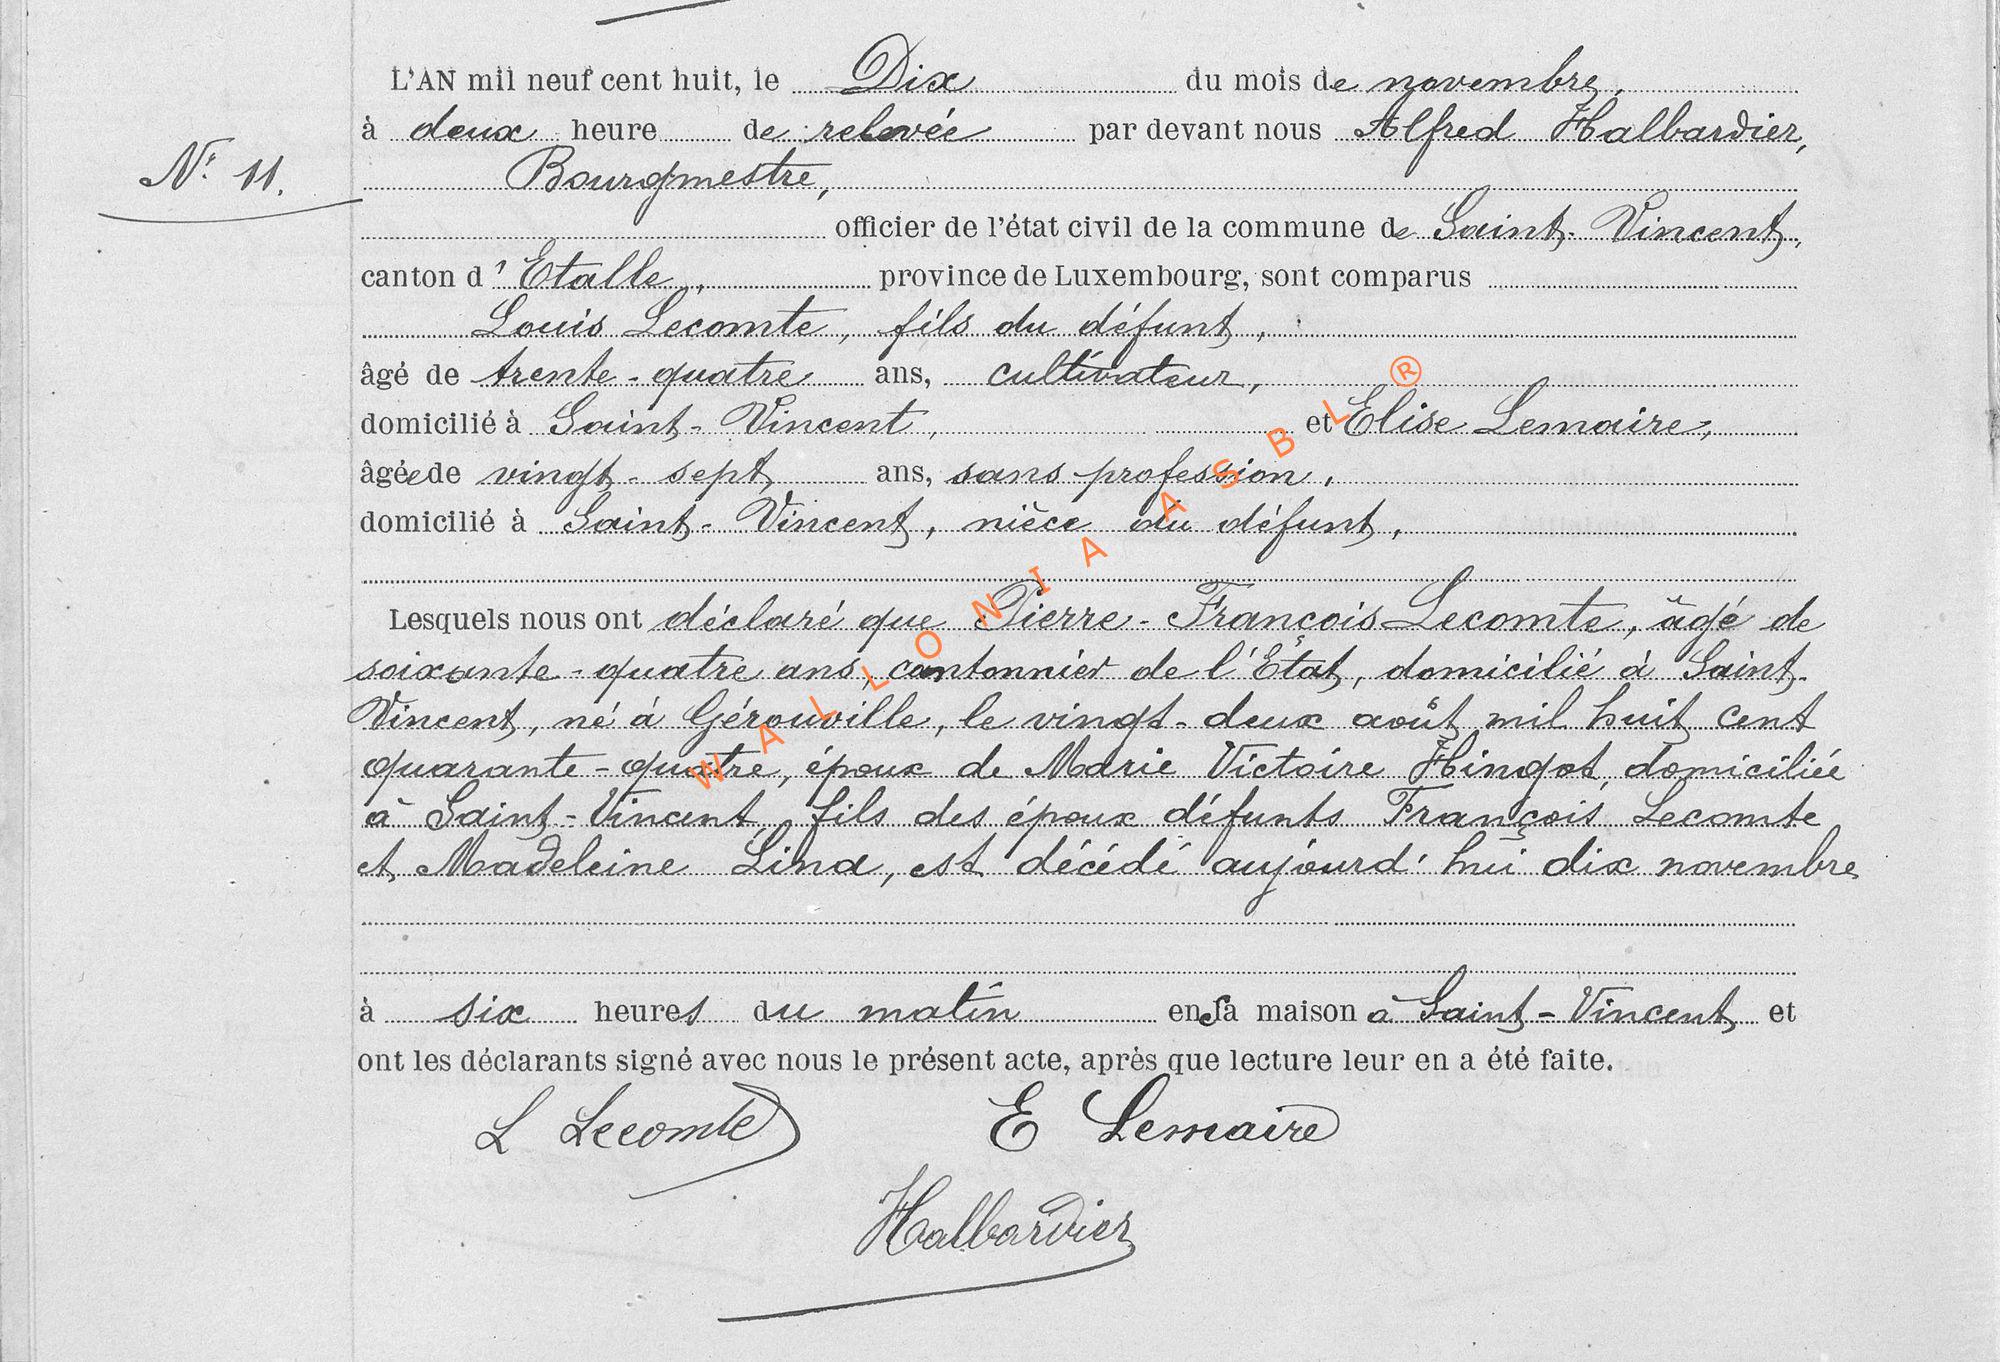 L'AN mil neuf cent huit, le Dix du mois de novembre,
à deux heure de relevée par devant nous Alfred Halbardier,
N° 11.
Bourgmestre,
officier de l'état civil de la commune de Saint-Vincent,
canton d'Etalle, province de Luxembourg, sont comparus
Louis Lecomte, fils du défunt,
âgé de trente-quatre ans, cultivateur,
domicilié à Saint-Vincent, et Elise Lemaire,
âgée de vingt-sept ans, sans profession,
domicilié à Saint-Vincent, nièce du défunt,
Lesquels nous ont déclaré que Pierre-François Lecomte, âgé de
soixante-quatre ans, cantonnier de l'État, domicilié à Saint-
Vincent, né à Gérouville, le vingt-deux août mil huit cent
quarante-quatre, époux de Marie Victoire Hingot, domiciliée
à Saint-Vincent, fils des époux défunts François Lecomte
et Madeleine Lina, est décédé aujourd'hui dix novembre
à six heures du matin en sa maison à Saint-Vincent et
ont les déclarants signé avec nous le présent acte, après que lecture leur en a été faite.
L Lecomte E Lemaire
Halbardier
WALLONIA ASBL ®